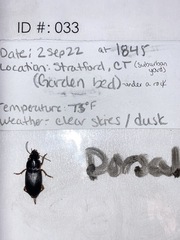 ID #: 033
Date: 2 Sep 22 at 1845
Location: Stratford, CT (Suburban yard)
(Garden bed) -under a rock
Temperature: 73°F
Weather- clear skies / dusk
Dorsal